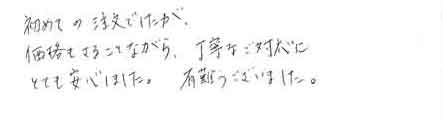 初めての注文でしたが、
価格もさることながら、丁寧なご対応に
とても安心しました。 有難うございました。